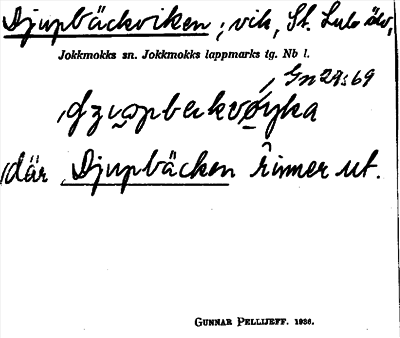 Djupbäckviken, vik, St. Lule älv,
Jokkmokks sn. Jokkmokks lappmarks tg. Nb l.
Gn 29:69
där Djupbäcken rinner ut.
GUNNAR PELLIJEFF. 1936.